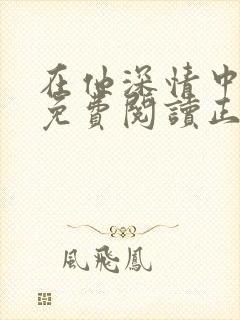 在他深情中
免費閱讀正
風飛鳳